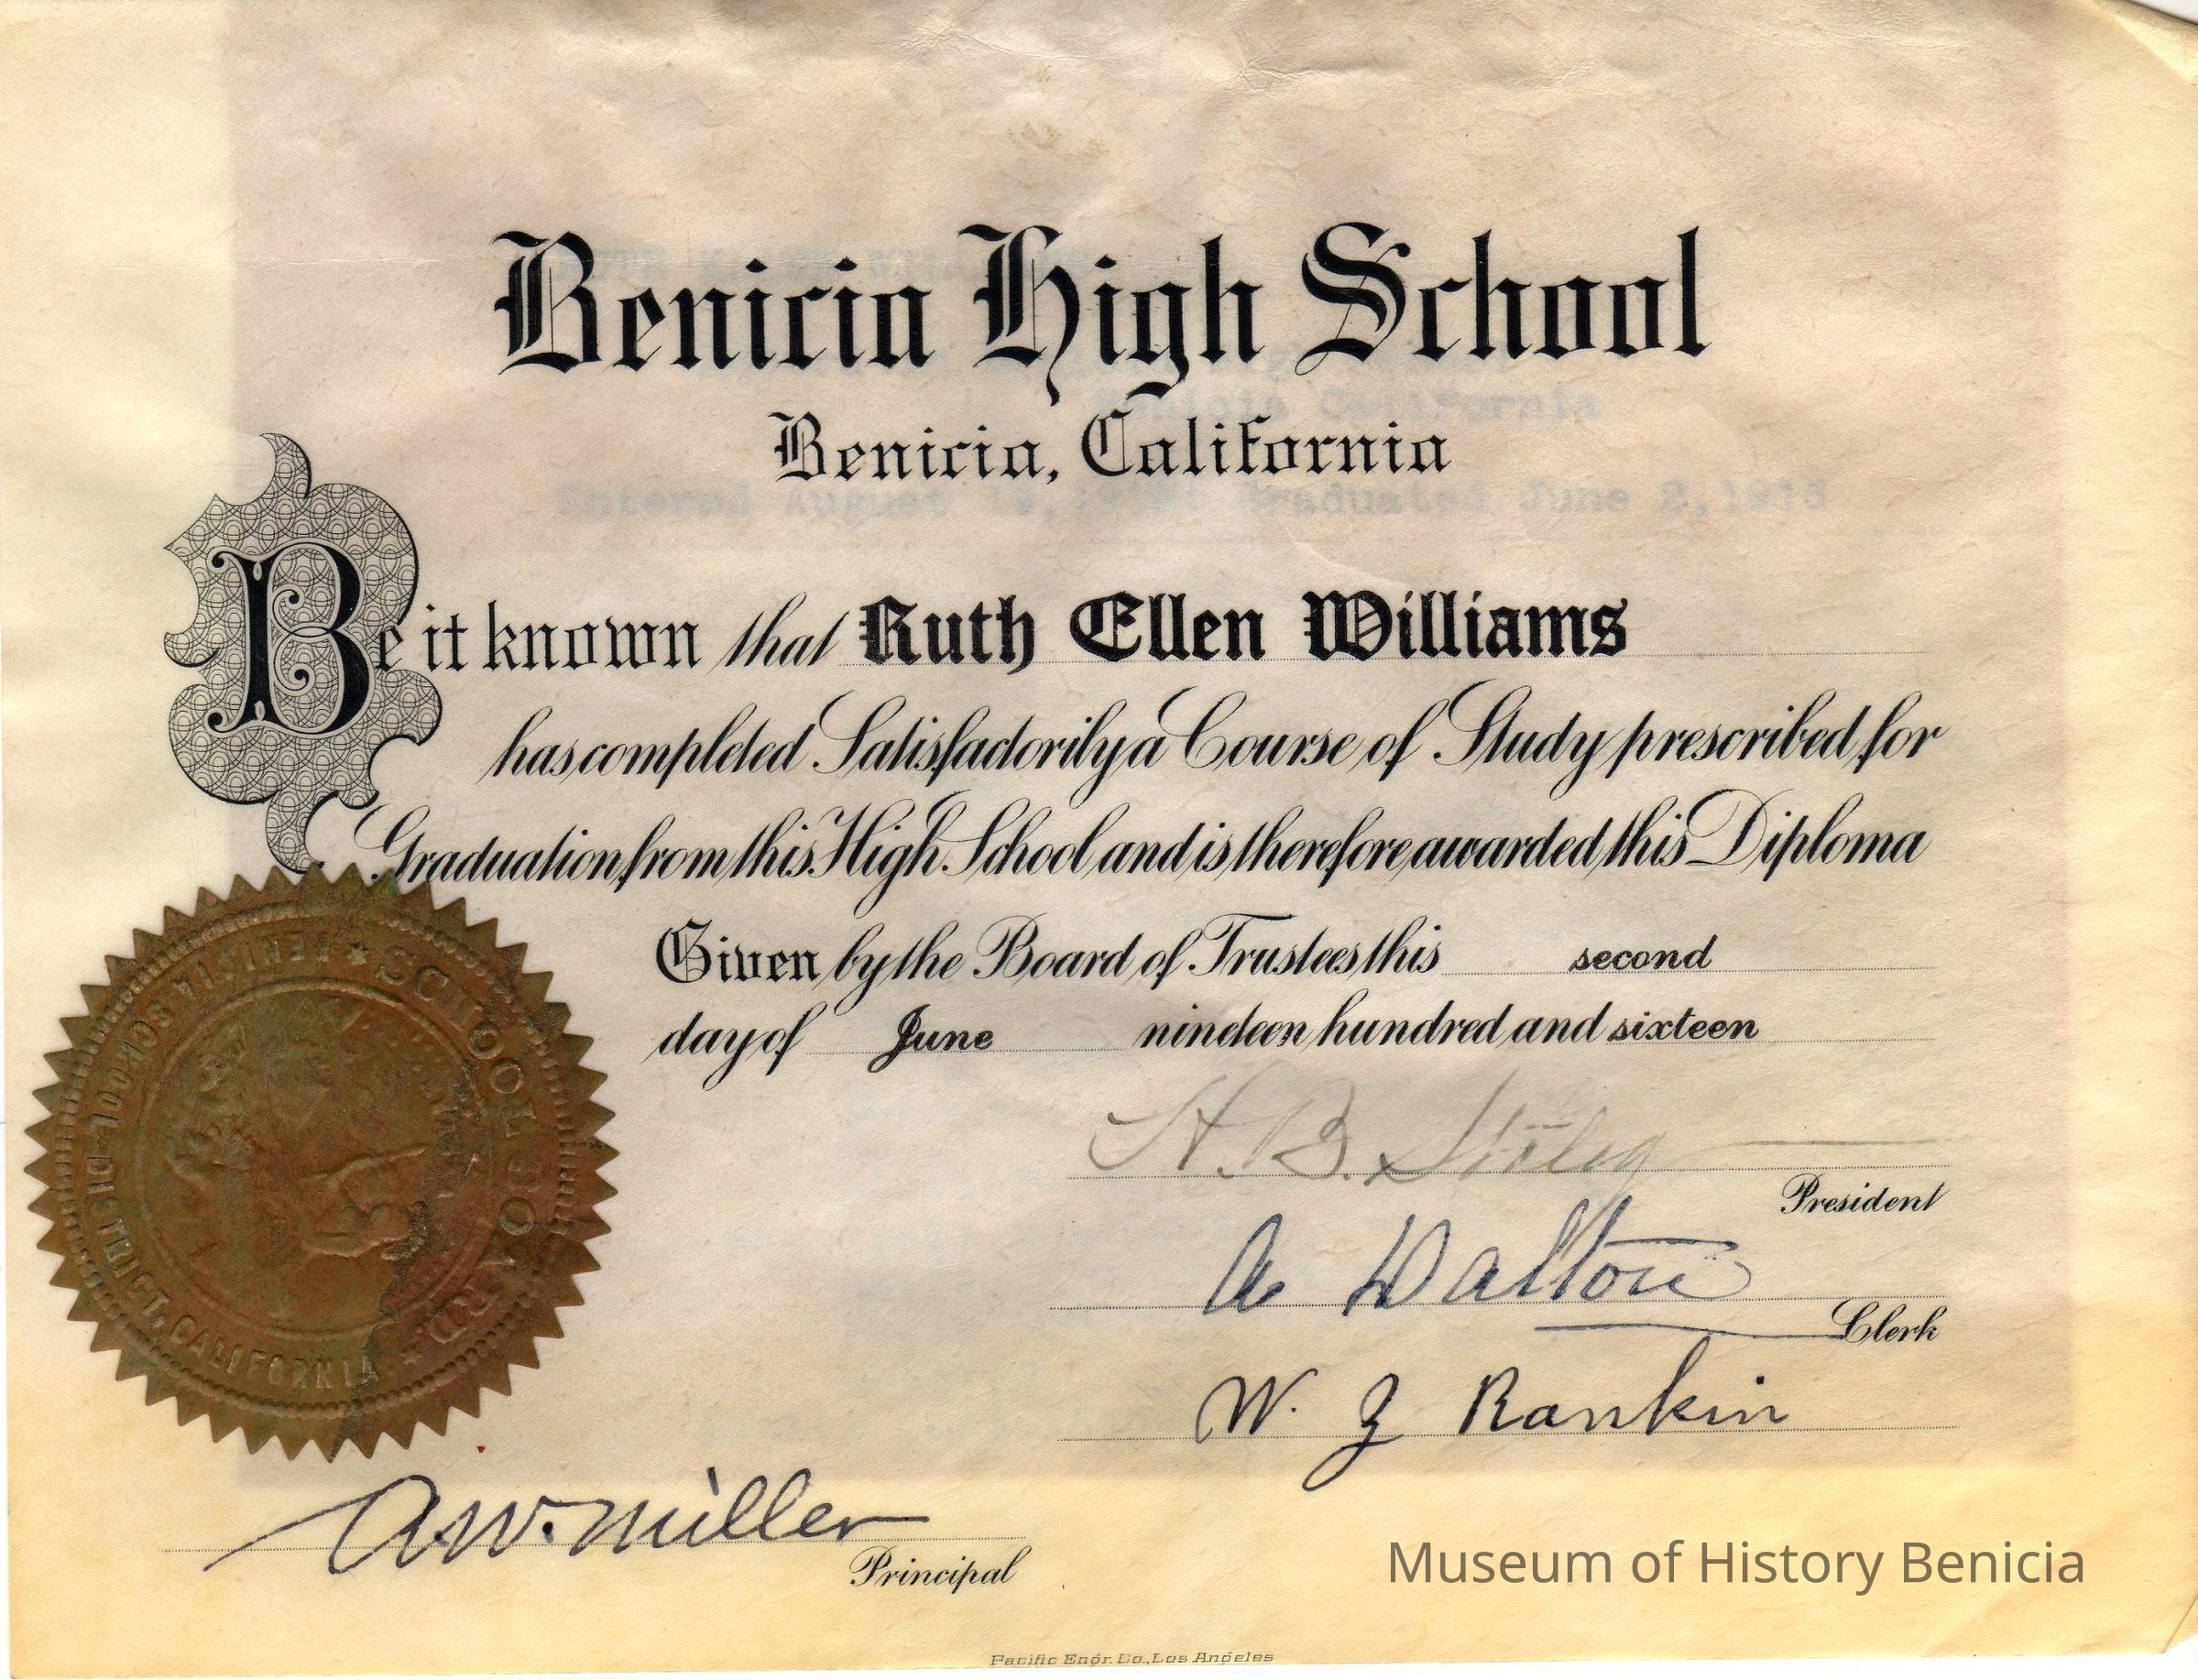 Benicia High School
Benicia, California
Entered August Graduated June 2, 1916
Be it known that Ruth Ellen Williams
has completed Satisfactorily a Course of Study prescribed for
Graduation from this High School and is therefore awarded this Diploma
Given by the Board of Trustees this second
day of June nineteen hundred and sixteen
H. B.
President
A Dalton
Clerk
W. J Rankin
A.W. Miller
Principal
BENICIA SCHOOL DISTRICT, CALIFORNIA
Museum of History Benicia
Pacific Engr. Co., Los Angeles